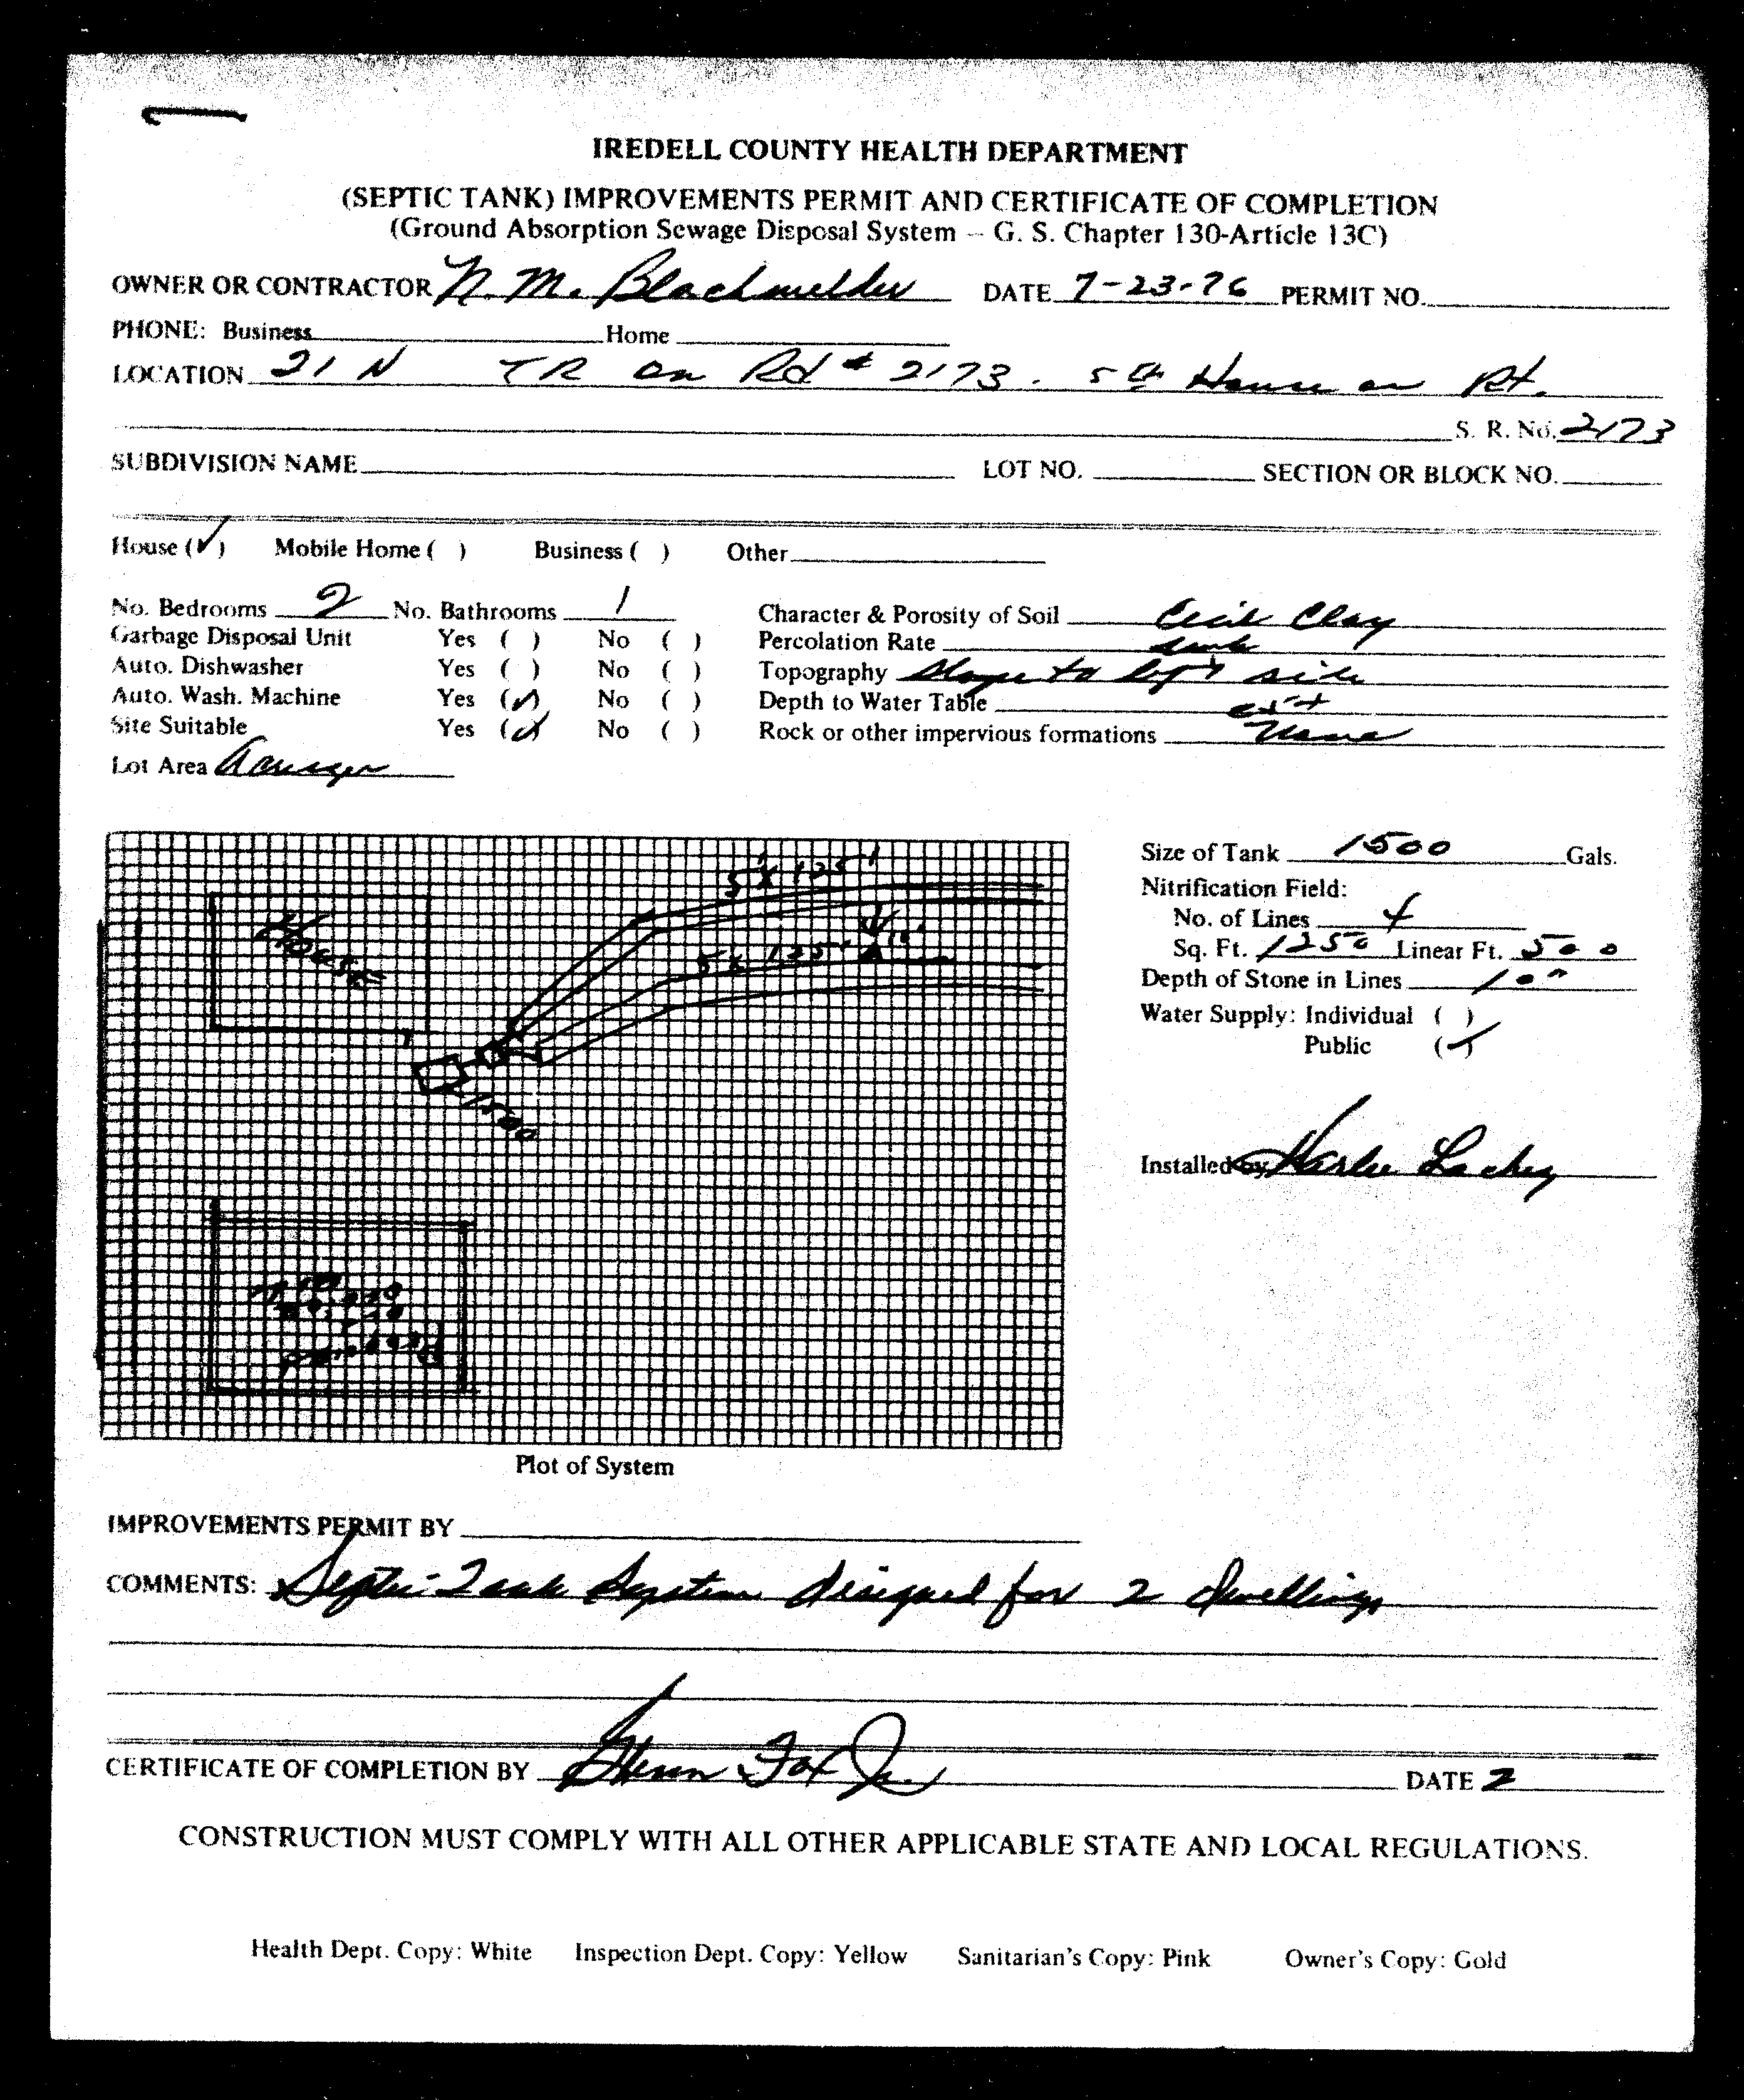 IREDELL COUNTY HEALTH DEPARTMENT
(SEPTIC TANK) IMPROVEMENTS PERMIT AND CERTIFICATE OF COMPLETION
(Ground Absorption Sewage Disposal System -- G. S. Chapter 130-Article 13C)
OWNER OR CONTRACTOR N. M. Blackwelder DATE 7-23-76 PERMIT NO.
PHONE: Business Home
LOCATION 21 N TR on Rd # 2173. 5th House on Rt.
S. R. No. 2173
SUBDIVISION NAME LOT NO. SECTION OR BLOCK NO.
House (✓) Mobile Home ( ) Business ( ) Other
No. Bedrooms 2 No. Bathrooms 1 Character & Porosity of Soil Cecil Clay
Garbage Disposal Unit Yes ( ) No ( ) Percolation Rate
Auto. Dishwasher Yes ( ) No ( ) Topography Slope to left side
Auto. Wash. Machine Yes (✓) No ( ) Depth to Water Table
Site Suitable Yes (✓) No ( ) Rock or other impervious formations None
Lot Area Acreage
5' X 125'
House
5 X 125'
10'
1500
Size of Tank 1500 Gals.
Nitrification Field:
No. of Lines 4
Sq. Ft. 1250 Linear Ft. 500
Depth of Stone in Lines 10"
Water Supply: Individual ( )
Public (✓)
Installed by Harlee Lackey
Plot of System
IMPROVEMENTS PERMIT BY
COMMENTS: Septic Tank System designed for 2 dwellings
CERTIFICATE OF COMPLETION BY Fox Jr. DATE 2
CONSTRUCTION MUST COMPLY WITH ALL OTHER APPLICABLE STATE AND LOCAL REGULATIONS.
Health Dept. Copy: White Inspection Dept. Copy: Yellow Sanitarian's Copy: Pink Owner's Copy: Gold